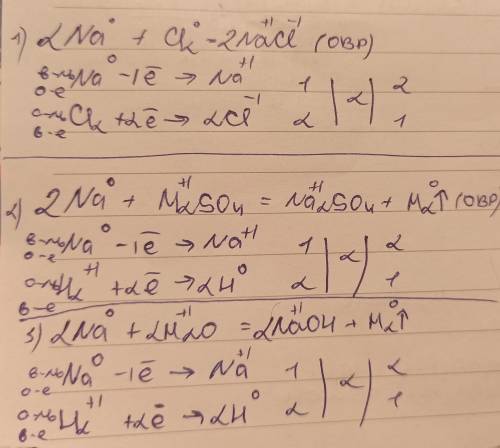 1) 2Na⁰ + Cl₂⁰ - 2Na⁺¹Cl⁻¹ (ОВР)
в-ль Na⁰ - 1ē → Na⁺¹ 1 | 2 | 2
о-е
о-ль Cl₂ + 2ē → 2Cl⁻¹ 2 | | 1
в-е
2) 2Na⁰ + H₂⁺¹SO₄ = Na₂⁺¹SO₄ + H₂⁰↑ (ОВР)
в-ль Na⁰ - 1ē → Na⁺¹ 1 | 2 | 2
о-е
о-ль H₂⁺¹ + 2ē → 2H⁰ 2 | | 1
в-е
3) 2Na⁰ + 2H₂⁺¹O = 2Na⁺¹OH + H₂⁰↑
в-ль Na⁰ - 1ē → Na⁺¹ 1 | 2 | 2
о-е
о-ль H₂⁺¹ + 2ē → 2H⁰ 2 | | 1
в-е